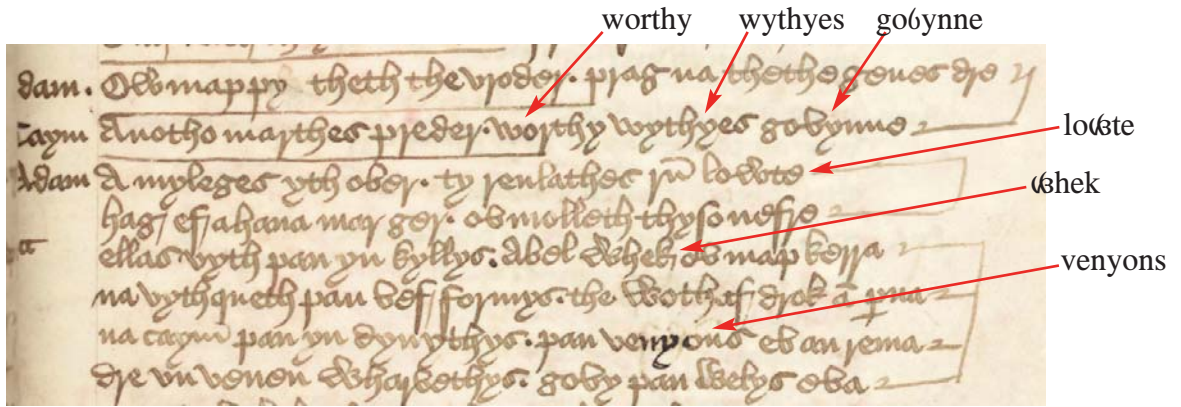 worthy wythyes goỽynne
dam . Owmappy theth the vroder . prag na thethe genes dre
Caym Anotho marthes preder . worthy wythyes goỽynne
loỽste
Adam A myleges yth ober . ty renlathes rū lowste
hag ef ahana mar ger . oỽ molleth thyso nefre
ỽhek
a ellas vyth pan yn kyllys . Abel whek oỽ map kerra
venyons
na vythqueth pan vef formys . the woth ef drok
na caym pan yn dynythys . pan venyons eỽ an rema
dre vn venen wharỽethys . goỽy pan welys eỽa